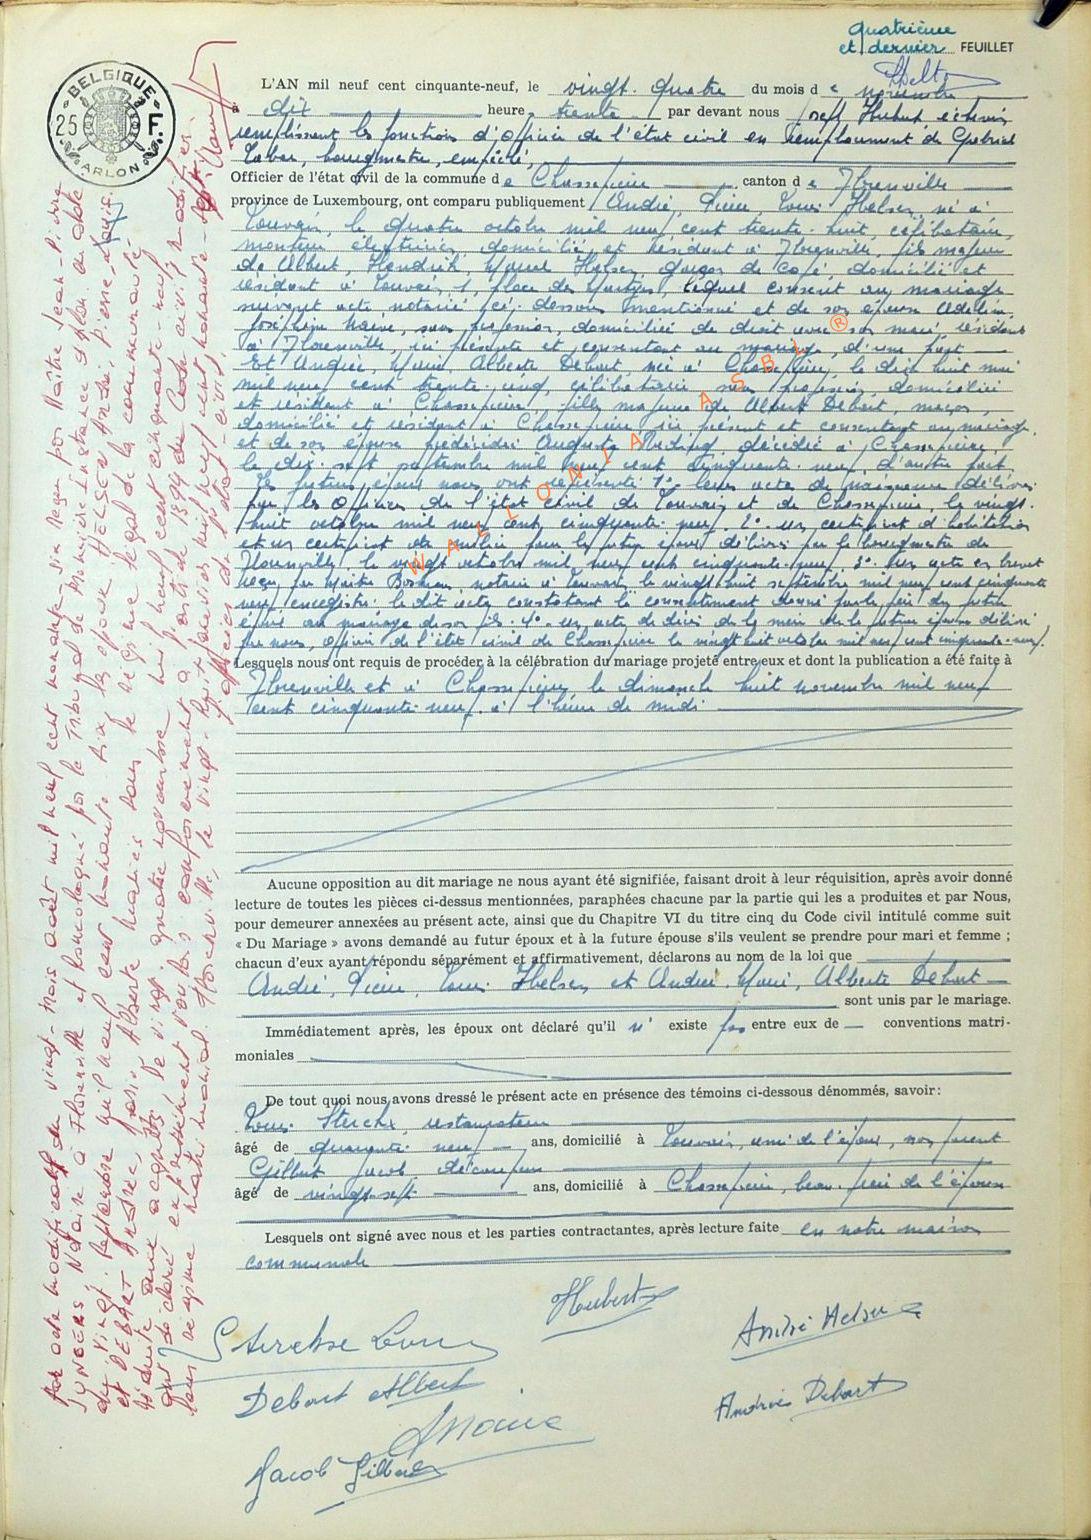 quatrième
et dernier FEUILLET
BELGIQUE
25 F.
ARLON
L'AN mil neuf cent cinquante-neuf, le vingt-quatre du mois de novembre
à dix heure trente par devant nous Hubert échevin
remplissant les fonctions d'Officier de l'état civil en remplacement de Gabriel
bourgmestre, empêché,
Officier de l'état civil de la commune de Chassepierre canton de Florenville
province de Luxembourg, ont comparu publiquement André, Pierre Louis Helsen, né à
Louvain, le quatre octobre mil neuf cent trente-huit, célibataire,
monteur électricien, domicilié et résidant à Florenville, fils majeur
de Albert, Hendrik, Marcel Helsen, garçon de café, domicilié et
résidant à Louvain, 1, place des Martyrs, lequel consent au mariage
suivant acte notarié ci-dessous mentionné et de son épouse Adeline,
Joséphine Maine, sans profession, domiciliée de droit avec son mari, résidant
à Florenville, ici présente et consentant au mariage, d'une part
Et Andrée, Marie, Alberte Debart née à Chassepierre, le dix-huit mai
mil neuf cent trente-cinq, célibataire sans profession domiciliée
et résidant à Chassepierre fille majeure de Albert Debart, maçon,
domicilié et résidant à Chassepierre ici présent et consentant au mariage,
et de son épouse prédécédée Augusta décédée à Chassepierre,
le dix-sept septembre mil neuf cent cinquante-neuf, d'autre part.
Les futurs époux nous ont représenté 1° leurs actes de naissance délivrés
par les Officiers de l'état civil de Louvain et de Chassepierre, le vingt-
huit octobre mil neuf cent cinquante-neuf. 2° un certificat d'habitation
et un certificat de milice pour le futur époux délivrés par le bourgmestre de
Florenville, le vingt octobre mil neuf cent cinquante-neuf. 3° un acte en brevet
reçu par Maître notaire à Louvain le vingt-huit septembre mil neuf cent cinquante
neuf enregistré, le dit acte constatant le consentement donné par le père du futur
époux au mariage de son fils. 4° un acte de décès de la mère de la future épouse délivré
par nous, officier de l'état civil de Chassepierre le vingt-huit octobre mil neuf cent cinquante-neuf.
Lesquels nous ont requis de procéder à la célébration du mariage projeté entre eux et dont la publication a été faite à
Florenville et à Chassepierre, le dimanche huit novembre mil neuf
cent cinquante-neuf, à l'heure de midi
WALLONIA ASBL ®
Aucune opposition au dit mariage ne nous ayant été signifiée, faisant droit à leur réquisition, après avoir donné
lecture de toutes les pièces ci-dessus mentionnées, paraphées chacune par la partie qui les a produites et par Nous,
pour demeurer annexées au présent acte, ainsi que du Chapitre VI du titre cinq du Code civil intitulé comme suit
« Du Mariage » avons demandé au futur époux et à la future épouse s'ils veulent se prendre pour mari et femme ;
chacun d'eux ayant répondu séparément et affirmativement, déclarons au nom de la loi que
André, Pierre, Louis Helsen et Andrée, Marie, Alberte Debart
sont unis par le mariage.
Immédiatement après, les époux ont déclaré qu'il n'existe pas entre eux de conventions matri-
moniales
De tout quoi nous avons dressé le présent acte en présence des témoins ci-dessous dénommés, savoir :
Louis Sterckx, restaurateur
âgé de quarante-neuf ans, domicilié à Louvain, ami de l'époux, non parent
Gilbert Jacob, découpeur
âgé de vingt-sept ans, domicilié à Chassepierre, beau-frère de l'épouse
Lesquels ont signé avec nous et les parties contractantes, après lecture faite en notre maison
communale
Hubert
Sterckx Louis
André Helsen
Debart Albert
Andrée Debart
Maine
Jacob Gilbert
par acte modificatif du vingt-trois août mil neuf cent nonante-six reçu par Maître Jean-Pierre
JUNGERS Notaire à Florenville et homologué par le Tribunal de Première Instance d'Arlon en date
du vingt septembre mil neuf cent nonante-six les époux HELSEN André, Pierre, Louis
et DEBART Andrée, Marie, Alberte mariés sous le régime légal de la communauté
réduite aux acquêts le vingt-quatre novembre mil neuf cent cinquante-neuf
ont déclaré vouloir conformément à l'article 1394 du Code civil modifier
leur régime matrimonial. Florenville, le vingt-